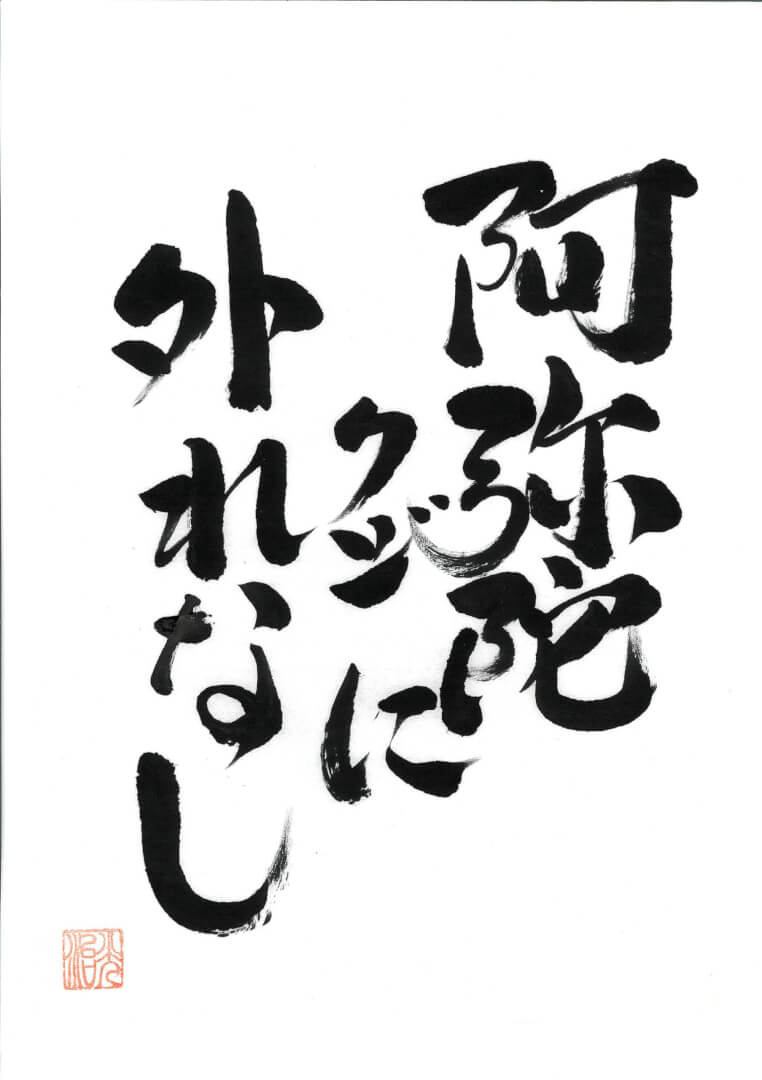 阿弥陀
クジに
外れなし